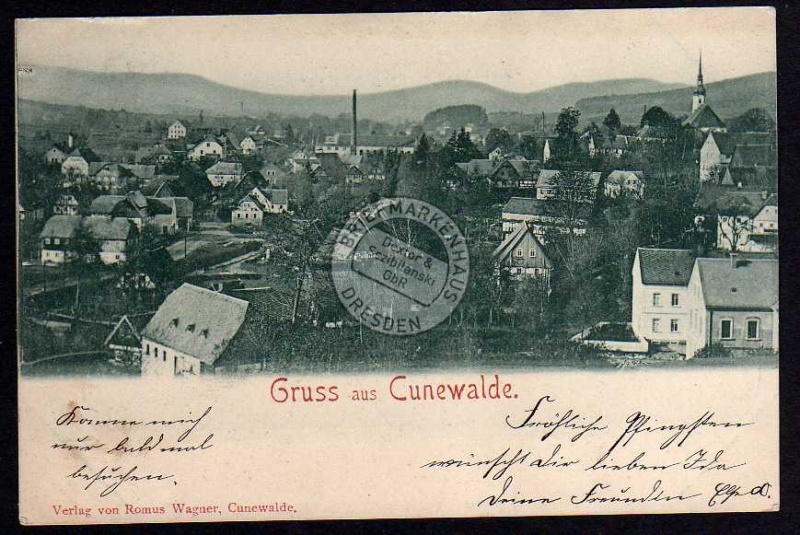 BRIEFMARKENHAUS
Dexter &
Szibilanski
GbR
DRESDEN
Gruss aus Cunewalde.
Komme mich
nur bald mal
besuchen.
Fröhliche Pfingsten
wünscht Dir lieben Ida
Deine Freundin Else
Verlag von Romus Wagner, Cunewalde.